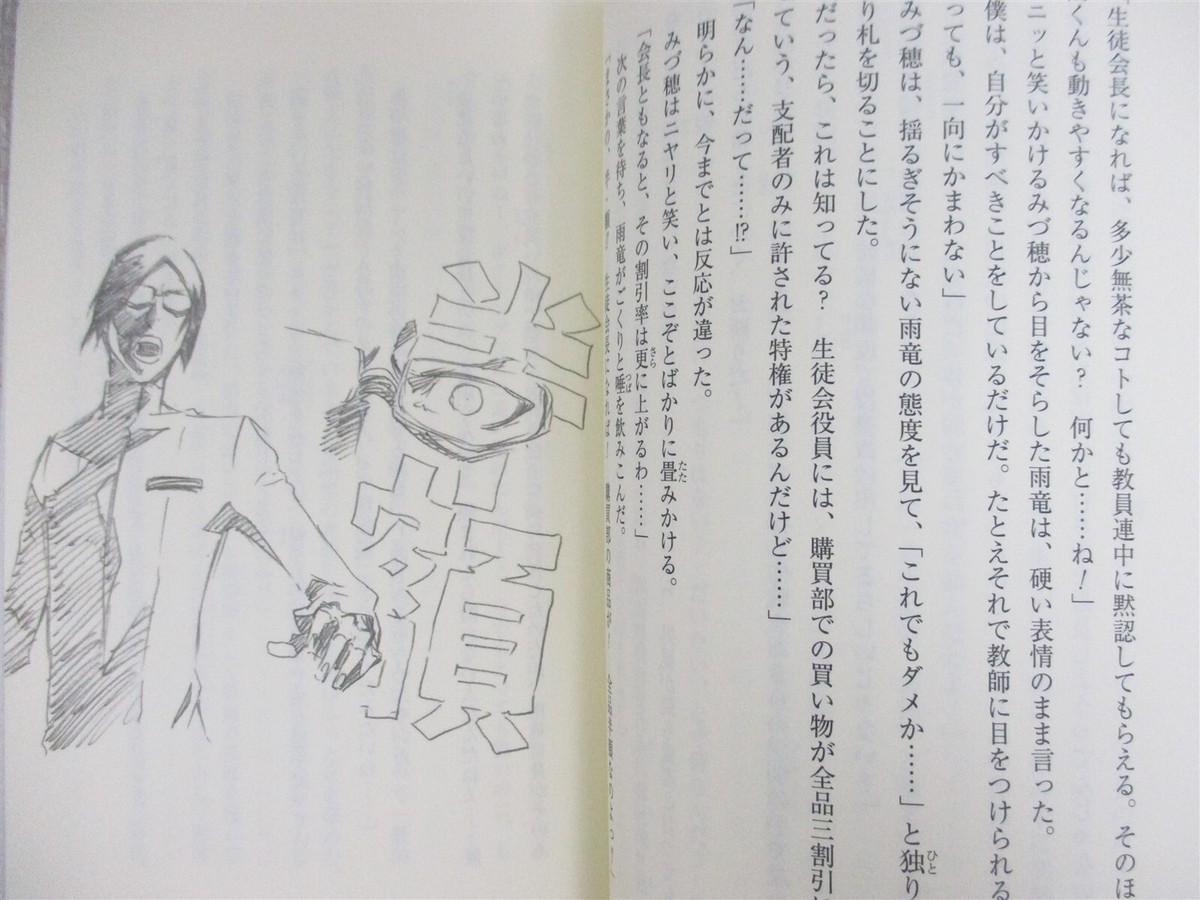 「生徒会長になれば、多少無茶なコトしても教員連中に黙認してもらえる。そのほ
くんも動きやすくなるんじゃない？　何かと……ね！」
ニッと笑いかけるみづ穂から目をそらした雨竜は、硬い表情のまま言った。
僕は、自分がすべきことをしているだけだ。たとえそれで教師に目をつけられる
っても、一向にかまわない」
みづ穂は、揺るぎそうにない雨竜の態度を見て、「これでもダメか……」と独り
り札を切ることにした。
だったら、これは知ってる？　生徒会役員には、購買部での買い物が全品三割引に
ていう、支配者のみに許された特権があるんだけど……」
「なん……だって……!?」
明らかに、今までとは反応が違った。
みづ穂はニヤリと笑い、ここぞとばかりに畳みかける。
「会長ともなると、その割引率は更に上がるわ……」
次の言葉を待ち、雨竜がごくりと唾を飲みこんだ。
「まさかの、半・額！　生徒会長になれば！　購買部の商品が！　全品半額なのよっ！
半額